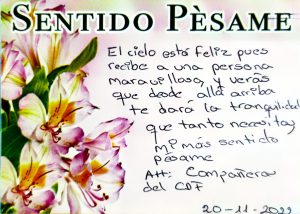 SENTIDO PÈSAME
El cielo está feliz pues
recibe a una persona
maravillosa, y verás
que desde allá arriba
te dará la tranquilidad
que tanto necesitas
Mi más sentido
pésame
Att: Compañeros
del CDF
20-11-2022